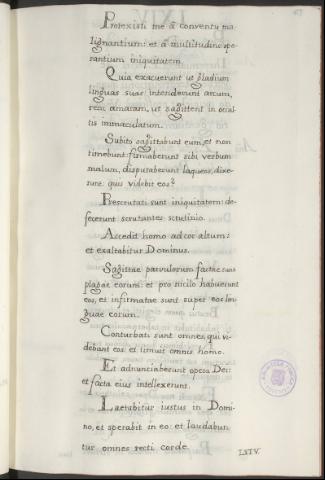 Protexisti me a conventu ma
lignantium: et a multitudine ope
rantium iniquitatem.
Quia exacuerunt ut gladium
linguas suas: intenderunt arcum,
rem amaram, ut sagittent in occul
tis immaculatum.
Subito sagittabunt eum, et non
timebunt: firmaberunt sibi verbum
malum, disputaberunt laqueos, dixe
runt: quis videbit eos?
Prescrutati sunt iniquitatem: de
fecerunt scrutantes scrutinio.
Accedit homo ad cor altum:
et exaltabitur Dominus.
Sagittae parvulorum factae sunt
plagae eorum: et pro nicilo habuerunt
eos, et infirmatae sunt super eos lin
guae eorum.
Conturbati sunt omnes qui vi-
debant eos et timuit omnis homo.
Et adnunciaberunt opera Dei:
et facta eius intellexerunt.
Laetabitur iustus in Domi-
no, et sperabit in eo: et laudabun
tur omnes recti corde.
LXIV.